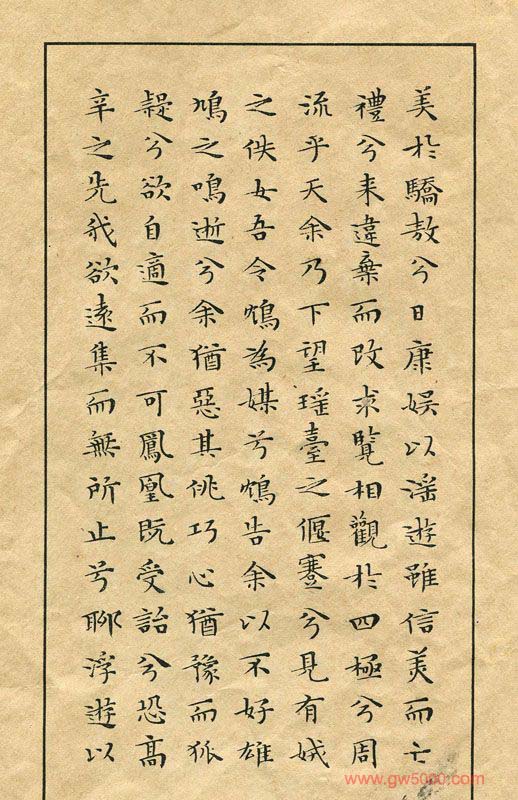 美於驕敖兮日康娱以滛遊雖信美而亡
禮兮来違棄而改求覽相觀於四極兮周
流乎天余乃下望瑶臺之偃蹇兮見有娀
之佚女吾令鴆為媒兮鴆告余以不好雄
鳩之鳴逝兮余猶惡其佻巧心猶豫而狐
疑兮欲自適而不可鳳凰既受詒兮恐高
辛之先我欲遠集而無所止兮聊浮遊以
www.gw5000.com